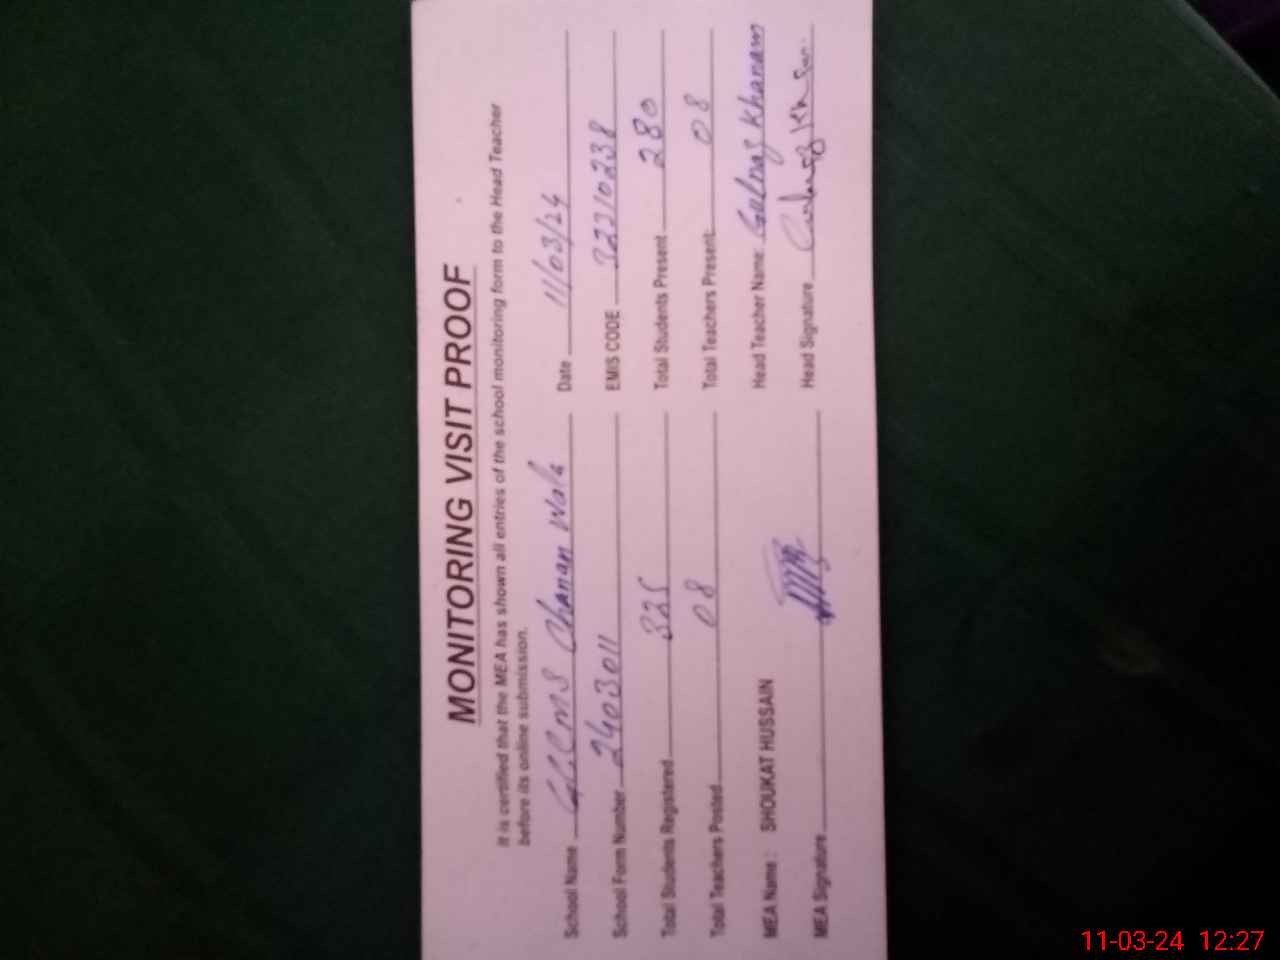 MONITORING VISIT PROOF
It is certified that the MEA has shown all entries of the school monitoring form to the Head Teacher
before its online submission.
School Name GCMS Chanan Wala Date 11/03/24
School Form Number 2403011 EMIS CODE 32310238
Total Students Registered 325 Total Students Present 280
Total Teachers Posted 08 Total Teachers Present 08
MEA Name : SHOUKAT HUSSAIN Head Teacher Name Gulnaz Khanam
MEA Signature Head Signature
11-03-24 12:27